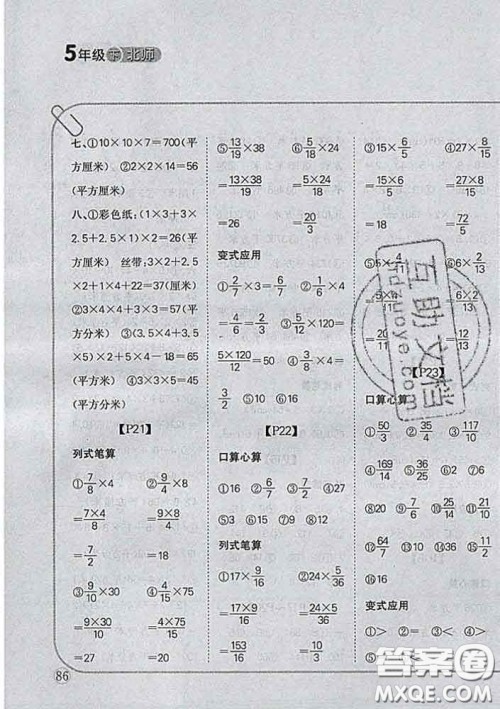 5年级 下 北师
七、①10×10×7=700(平
方厘米) ②2×2×14=56
(平方厘米)
八、①彩色纸:(1×3+3×
2.5+2.5×1)×2=26(平
方厘米) 丝带:3×2+2.5
×2+1×4+22=37(厘米)
②3×4×4+3×3=57(平
方分米) ③(3.5×4+3.5
×5)×2+5×4-18=65
(平方米) ④3×4×15=45
(平方分米)
【P21】
列式笔算
①7/8×4 ②4/15×75
=7×4/8 =4×75/15
=7/2 =20
③9/10×30 ④4/15×75
=9×30/10 =4×75/15
=27 =20
⑤13/19×38 ⑥5/18×24
=13×38/19 =5×24/18
=26 =20/3
变式应用
①2/7×3=6/7 ②1/6×4
=4/6=2/3 ③5/12×120=
5×120/12=50 ④3/8×4=
3/2 ⑤10 ⑥16
【P22】
口算心算
①16 ②6/7 ③7/2 ④27
⑤3 ⑥15 ⑦9 ⑧12
列式笔算
①17×9/16 ②24×5/36
=17×9/16 =24×5/36
=153/16 =10/3
③15×6/5 ④27×8/15
=15×6/5 =27×8/15
=18 =72/5
【P23】
口算心算
①50/3 ②35/4 ③117/10
④169/14 ⑤36/25 ⑥2 ⑦6
⑧20 ⑨7/9 ⑩25/14 ⑪21/10
⑫64/7 ⑬10 ⑭4 ⑮9
⑯16
变式应用
①> ②= ③< ④>
86
互助文档
hdzuoye.com
答案圈
MXQE.COM